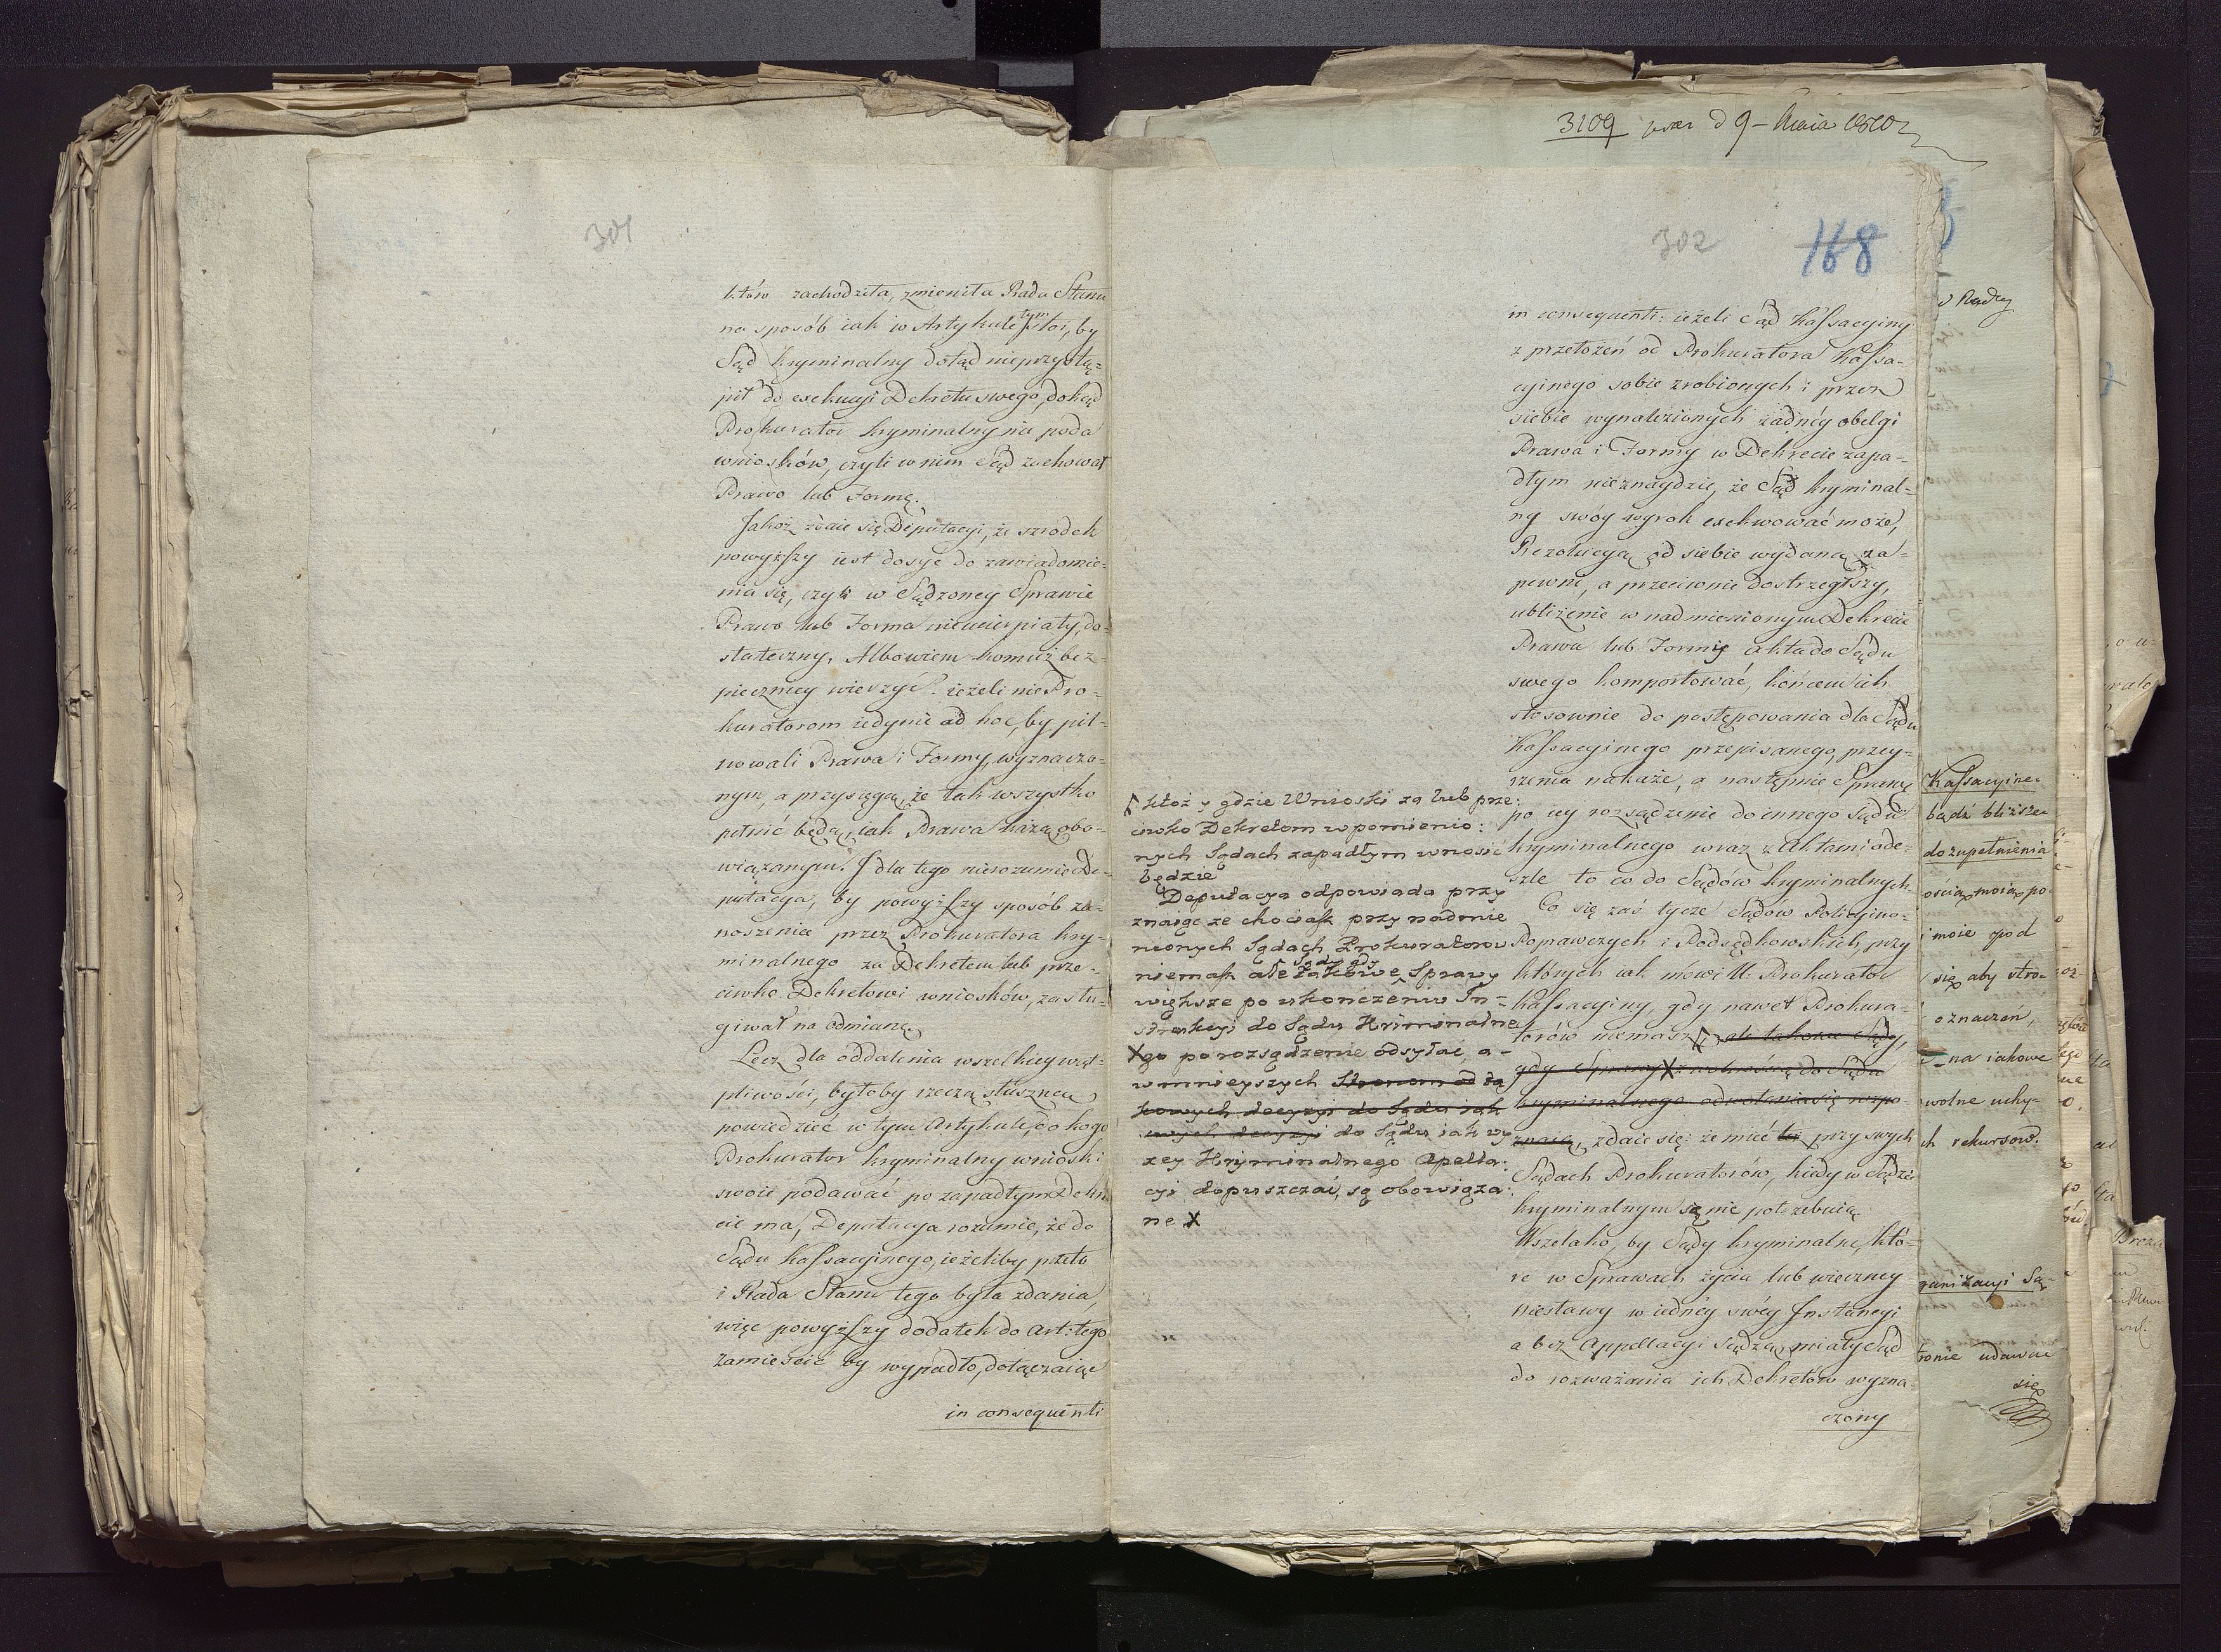 301
któw zachodziła, zmieniła Rada Stanu
na sposób iak w Artykule tym stoi, by
Sąd kryminalny dotąd nieprzystą=
pił do exekucyi Dekretu swego, dokąd
Prokurator kryminalny nie poda
wniosków, czyli w nim Sąd zachował
Prawo lub Formę.
Jakoż zdaie się Deputacyi, że szrodek
powyższy iest dosyc do zawiadomie=
nia się, czyli w Sądzoney Sprawie
Prawo lub Forma nieucierpiały, do=
stateczny. Albowiem komuż bez=
pieczniey wierzyć? ieżeli nie Pro=
kuratorom iedynie ad hoc, by pil=
nowali Prawa i Formy, wyznaczo=
nym, a przysięgą, że tak wszystko
pełnić będą, iak Prawa każą, obo=
wiązanym. I dla tego nierozumie De=
putacya, by powyższy sposób za=
noszenia przez Prokuratora kry=
minalnego za Dekretem lub prze=
ciwko Dekretowi wniosków, zasłu=
giwał na odmianę.
Lecz dla oddalenia wszelkiey wąt=
pliwości, byłoby rzeczą słuszną
powiedzieć w tym Artykule, do kogo
Prokurator kryminalny wnioski
swoie podawać po zapadłym Dekre
cie ma, Deputacya rozumie, że do
Sądu Kassacyinego, ieżeliby przeto
i Rada Stanu tego była zdania,
więc powyższy dodatek do Art: tego
zamieścić by wypadło, dołączaiąc
in consequenti
3109 d 9 Maia 1810
302
168
in consequenti: ieżeli Sąd Kassacyiny
z przełożeń od Prokuratora Kassa=
cyinego sobie zrobionych i przez
siebie wynalezionych żadnéy obelgi
Prawa i Formy w Dekrecie zapa=
dłym nieznaydzie, że Sąd kryminal=
ny swóy wyrok exekwować może,
Rezolucyą od siebie wydaną za=
pewni, a przeciwnie dostrzegłszy,
ubliżenie w nadmienionym Dekrecie
Prawa lub Formy akta do Sądu
swego komportować, końcem ich
stosownie do postępowania dla Sądu
Kassacyinego przepisanego, przey=
rzenia nakaże, a następnie Sprawę
po iey rozsądzenie do innego Sądu
kryminalnego wraz z Aktami ode=
szle to co do Sądów kryminalnych.
Co się zaś tycze Sądów Policyino=
Poprawczych i Podsędkowskich, przy
których iak mówi U. Prokurator
Kassacyiny, gdy nawet Prokura=
torów niemasz, ale takowe Sądy,
gdy Sprawy X z wolnością do Sądu
kryminalnego odwołania się wypo=
znaią, zdaie się: że mieć też przy swych
Sądach Prokuratorów, kiedy w Sądzie
kryminalnym są nie potrzebuią.
Wszelako, by Sądy kryminalne, któ=
re w Sprawach życia lub wieczney
niesławy w iednéy swéy Instancyi
a bez Appellacyi sądzą, miały Sąd
do rozważania ich Dekretów wyzna=
czony
któż y gdzie Wnioski za lub prze:
ciwko Dekretom wpomienio:
nych Sądach zapadłym wnosić
będzie
Deputacya odpowiada przy
znaiąc że chociasz przy nadmie
nionych Sądach Prokuratorow
niemasz ale takowe Sądy gdy Sprawy
większe po ukończeniu In=
strukcyi do Sądu Kriminalne
X go po rozsądzenie odsyłać, a=
w mnieyszych Stronom od ta
kowych decyzyi do Sądu iak
owych decyzyi do Sądu iak wy
zey Kryminalnego Apella:
cyi dopuszczać, są obowiąza:
ne X
Kassacyine=
bądź bliższe
do zupełnienia
i moie pod
się aby stro=
oznaczeń,
na iakowe
wolne uchy=
h rekursow.
ganizacyi Są=
ronie udawać
się